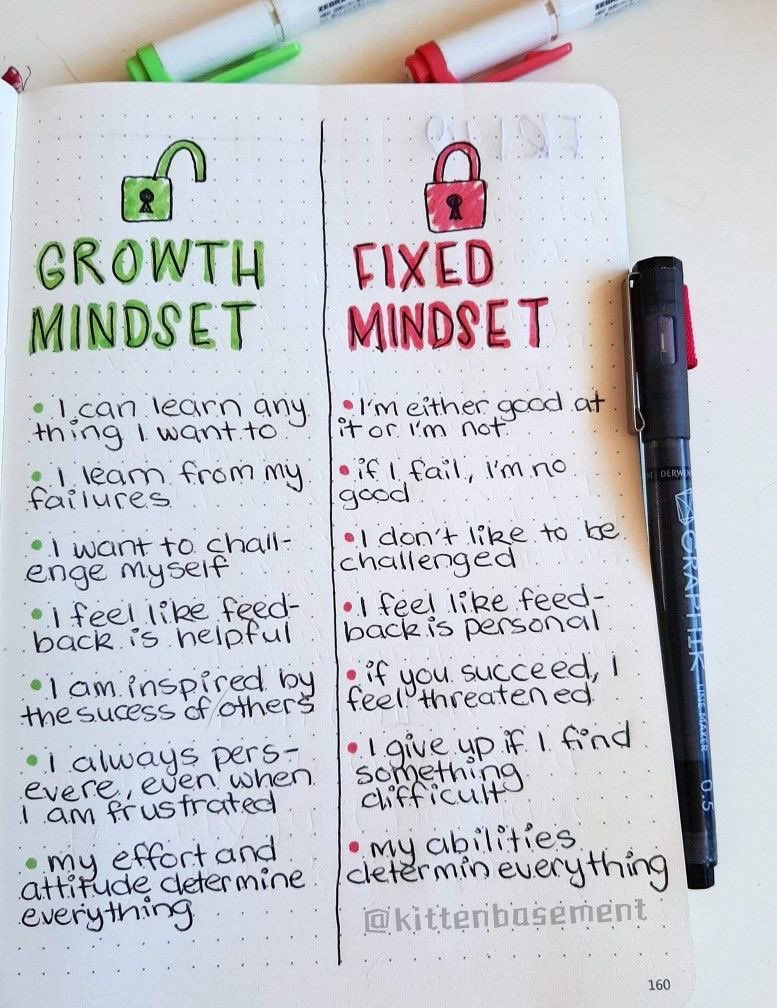 ZEBRA
ZEBRA
GROWTH
MINDSET
• I can learn any
thing I want to
• I learn from my
failures
• I want to chall-
enge myself
• I feel like feed-
back is helpful
• I am inspired by
the sucess of others
• I always pers-
evere, even when
I am frustrated
• my effort and
attitude determine
everything
FIXED
MINDSET
• I'm either good at
it or I'm not
• if I fail, I'm no
good
• I don't like to be
challenged
• I feel like feed-
back is personal
• if you succeed, I
feel threatened
• I give up if I find
something
difficult
• my abilities
determin everything
@kittenbasement
160
DERWENT
GRAPHIK
LINE MAKER 0.5